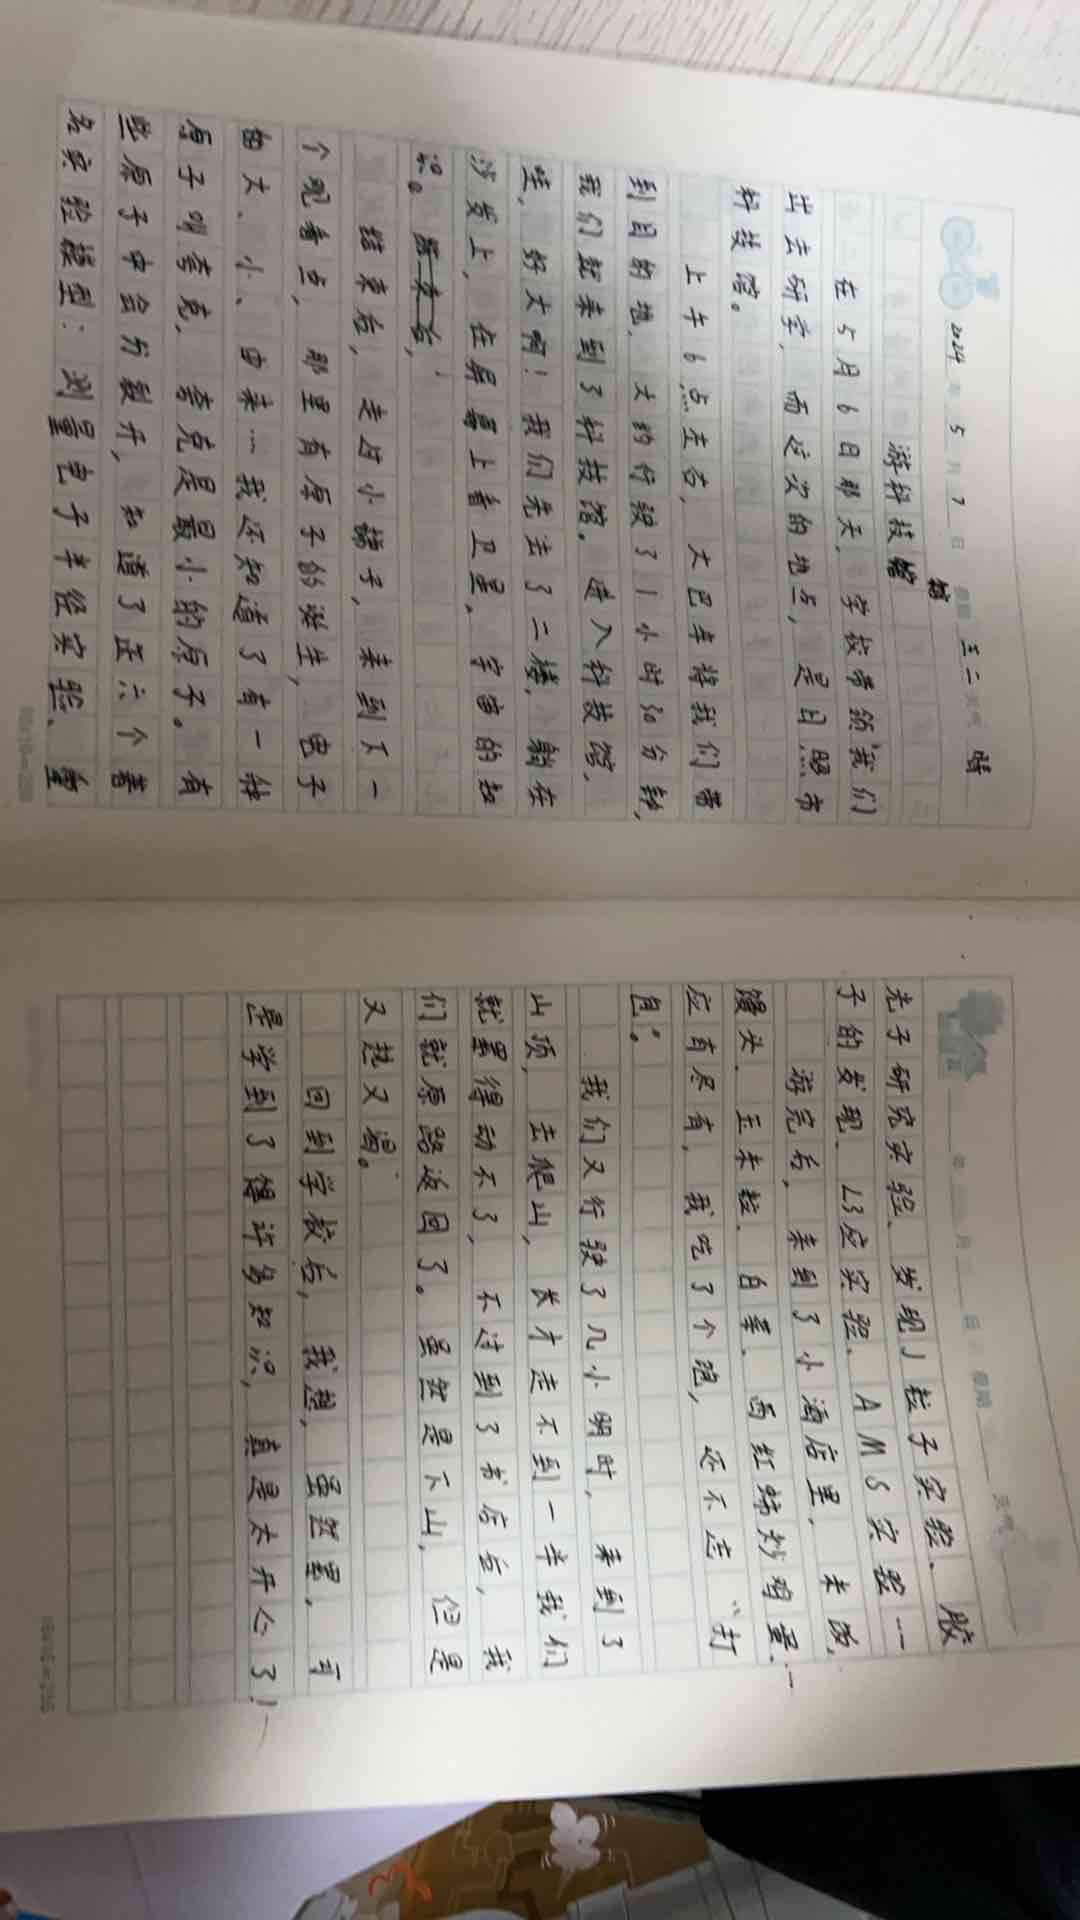 2024 年 5 月 7 日 星期 三二 天气 晴
游科技馆
在5月6日那天，学校带领我们
出去研学，而这次的地点，是日照市
科技馆。
上午6点左右，大巴车将我们带
到目的地，大约行驶了1小时30分钟，
我们起来到了科技馆。进入科技馆，
哇，好大啊！我们先去了二楼，躺在
沙发上，在屏幕上看卫星，宇宙的知
识。
结束后，走过小梯子，来到下一
个观看点，那里有原子的诞生，电子
由大、小、由来…我还知道了有一种
原子叫夸克，夸克是最小的原子。有
些原子中会分裂开，知道了正六个著
名实验模型：浏量电子半径实验、重
16×16=256
年 月 日 星期 天气
光子研究实验、发现J粒子实验、胶
子的发现、L3应实验、AMS实验……
游完后，来到了小酒店里，米饭，
馒头、玉米粒、白菜、西红柿炒鸡蛋…
应有尽有，我吃了个饱，还不忘“打
包”。
我们又行驶了几小明时，来到了
山顶，去爬山，长才走不到一半我们
就累得动不了，不过到了书店后，我
们就原路返回了。虽然是下山，但是
又热又渴。
回到学校后，我想，虽然累，可
是学到了懂许多知识，真是太开心了！
16×16=256